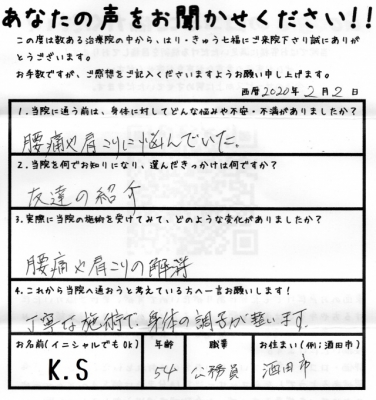 あなたの声をお聞かせください!!
この度は数ある治療院の中から、はり・きゅう七福にご来院下さり誠にありが
とうございます。
お手数ですが、ご感想をご記入くださいますようお願い申し上げます。
西暦2020年2月2日
1.当院に通う前は、身体に対してどんな悩みや不安・不満がありましたか?
腰痛や肩こりに悩んでいた。
2.当院を何でお知りになり、選んだきっかけは何ですか?
友達の紹介
3.実際に当院の施術を受けてみて、どのような変化がありましたか?
腰痛や肩こりの解消
4.これから当院へ通おうと考えている方へ一言お願いします!
丁寧な施術で、身体の調子が整います。
お名前(イニシャルでもOK) 年齢 職業 お住まい(例;酒田市)
K.S 54 公務員 酒田市